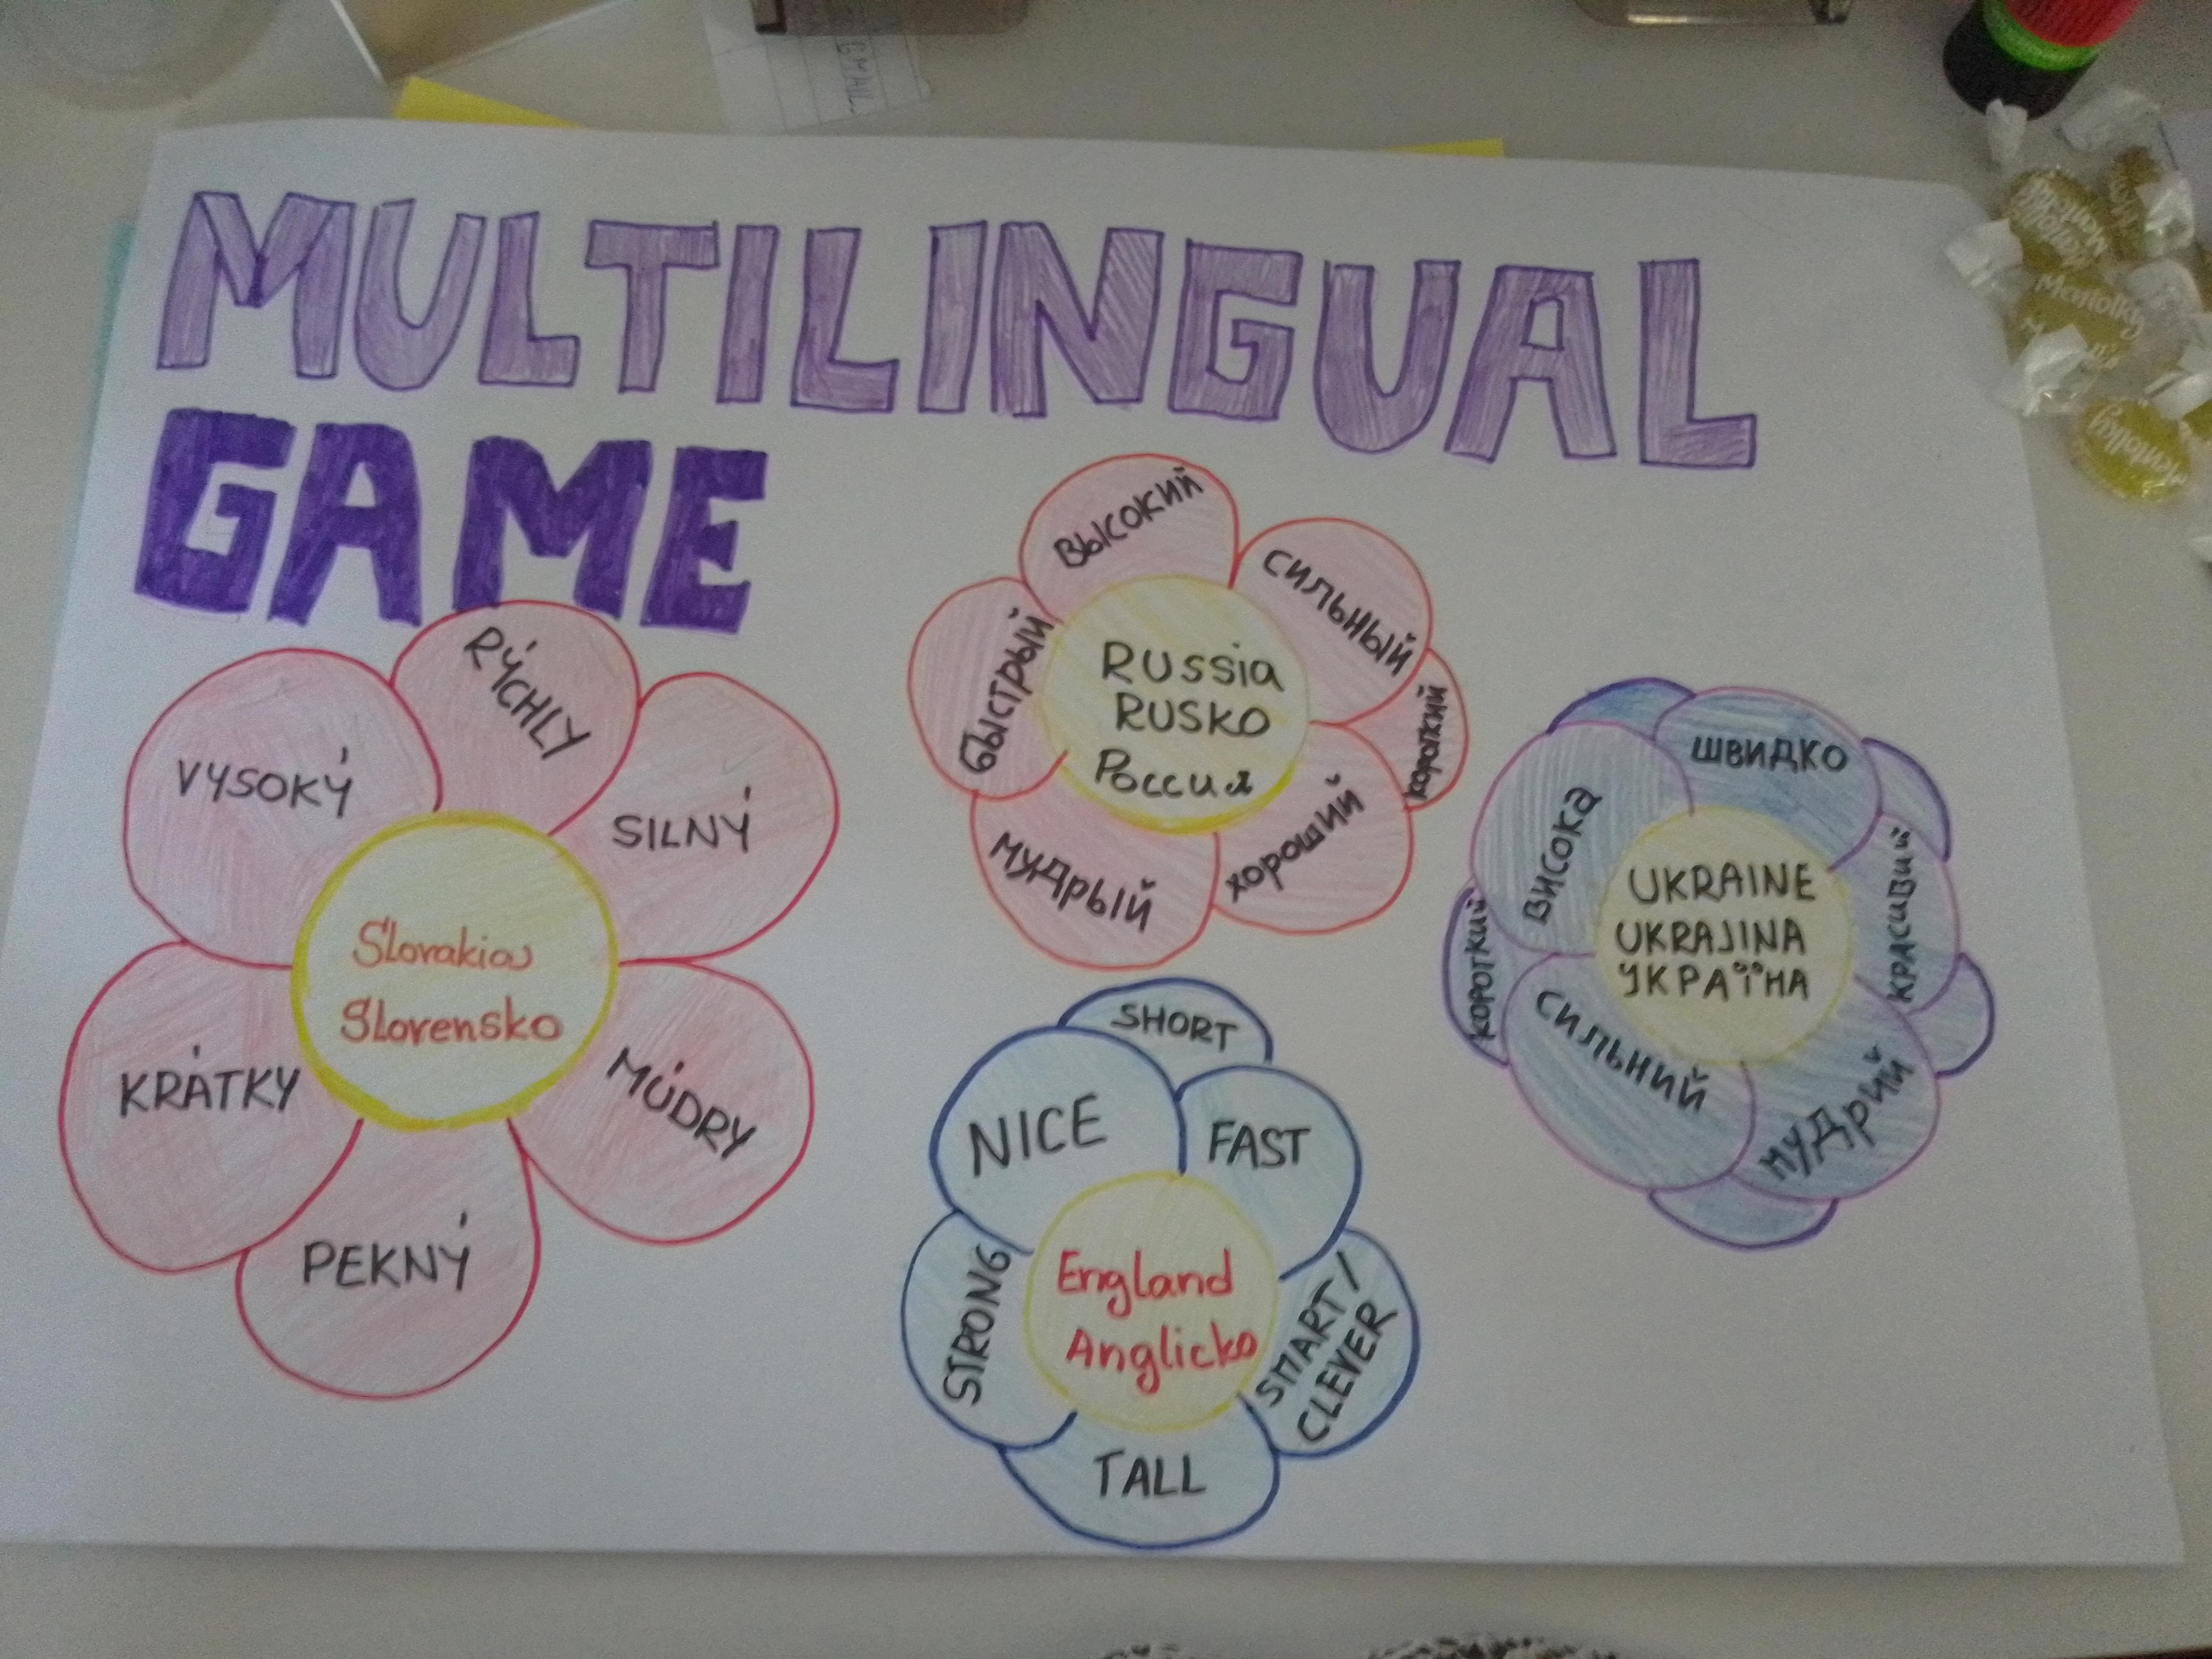 EMAIL
MULTILINGUAL
GAME
RÝCHLY
VYSOKÝ
SILNÝ
Slovakia
Slovensko
KRÁTKY
MÚDRY
PEKNÝ
ВЫСОКИЙ
СИЛЬНЫЙ
БЫСТРЫЙ
RUSSIA
RUSKO
Россия
короткий
мудрый
хороший
SHORT
NICE
FAST
STRONG
England
Anglicko
SMART/
CLEVER
TALL
ШВИДКО
ВИСОКА
КРАСИВИЙ
UKRAINE
UKRAJINA
УКРАЇНА
КОРОТКИЙ
СИЛЬНИЙ
МУДРИЙ
Mentolky
Mentolky